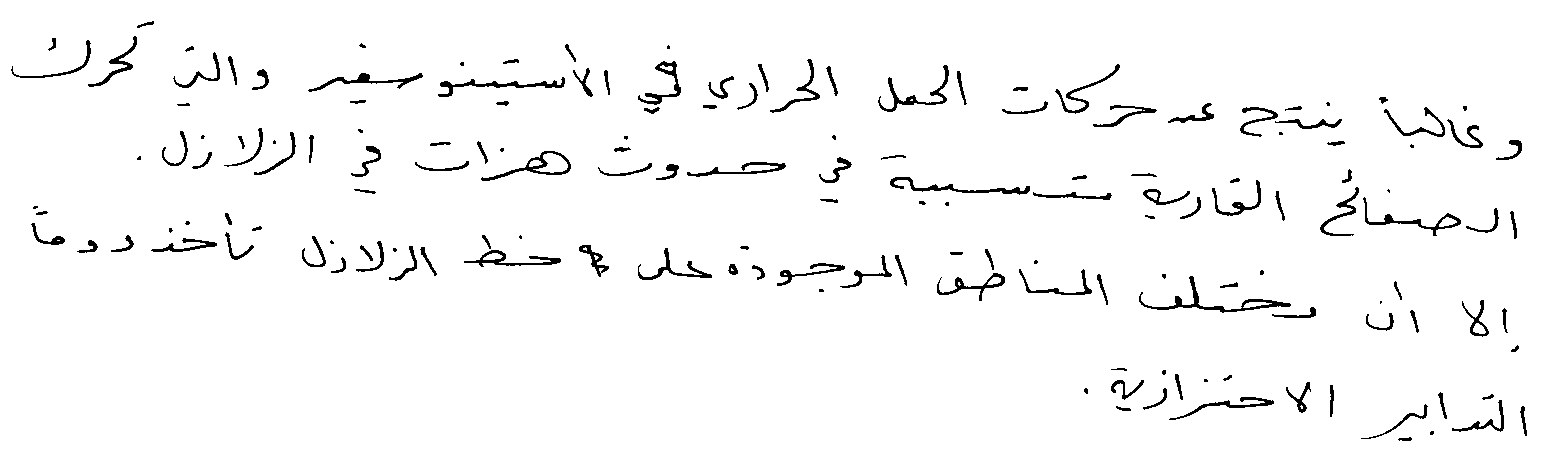 وغالباً ينتج عن حركات الحمل الحراري في الأستينوسفير والتي تحرك
الصفائح القارية متسببة في حدوث هزات في الزلازل.
إلا أن مختلف المناطق الموجودة على خط الزلازل تأخذ دوماً
التدابير الاحترازية.